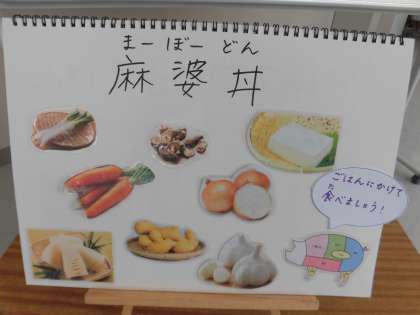 まーぼーどん
麻婆丼
ごはんにかけて
食べましょう!